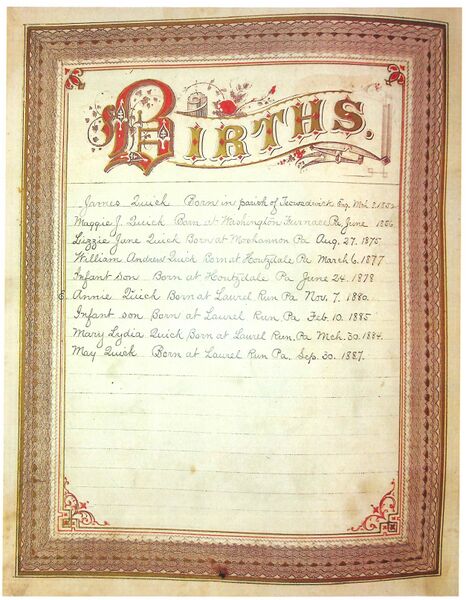 BIRTHS.
James Quick Born in parish of Eng. Mch. 2. 1852
Maggie J. Quick Born at Washington Furnace Pa. June 1856
Lizzie Jane Quick Born at Moshannon Pa Aug. 27. 1875.
William Andrew Quick Born at Houtzdale, Pa March 6. 1877
Infant son Born at Houtzdale Pa June 24. 1878
E. Annie Quick Born at Laurel Run, Pa Nov. 7. 1880.
Infant son Born at Laurel Run, Pa Feb. 10. 1885
Mary Lydia Quick Born at Laurel Run, Pa Mch. 30. 1884.
May Quick Born at Laurel Run Pa. Sep. 30. 1887.